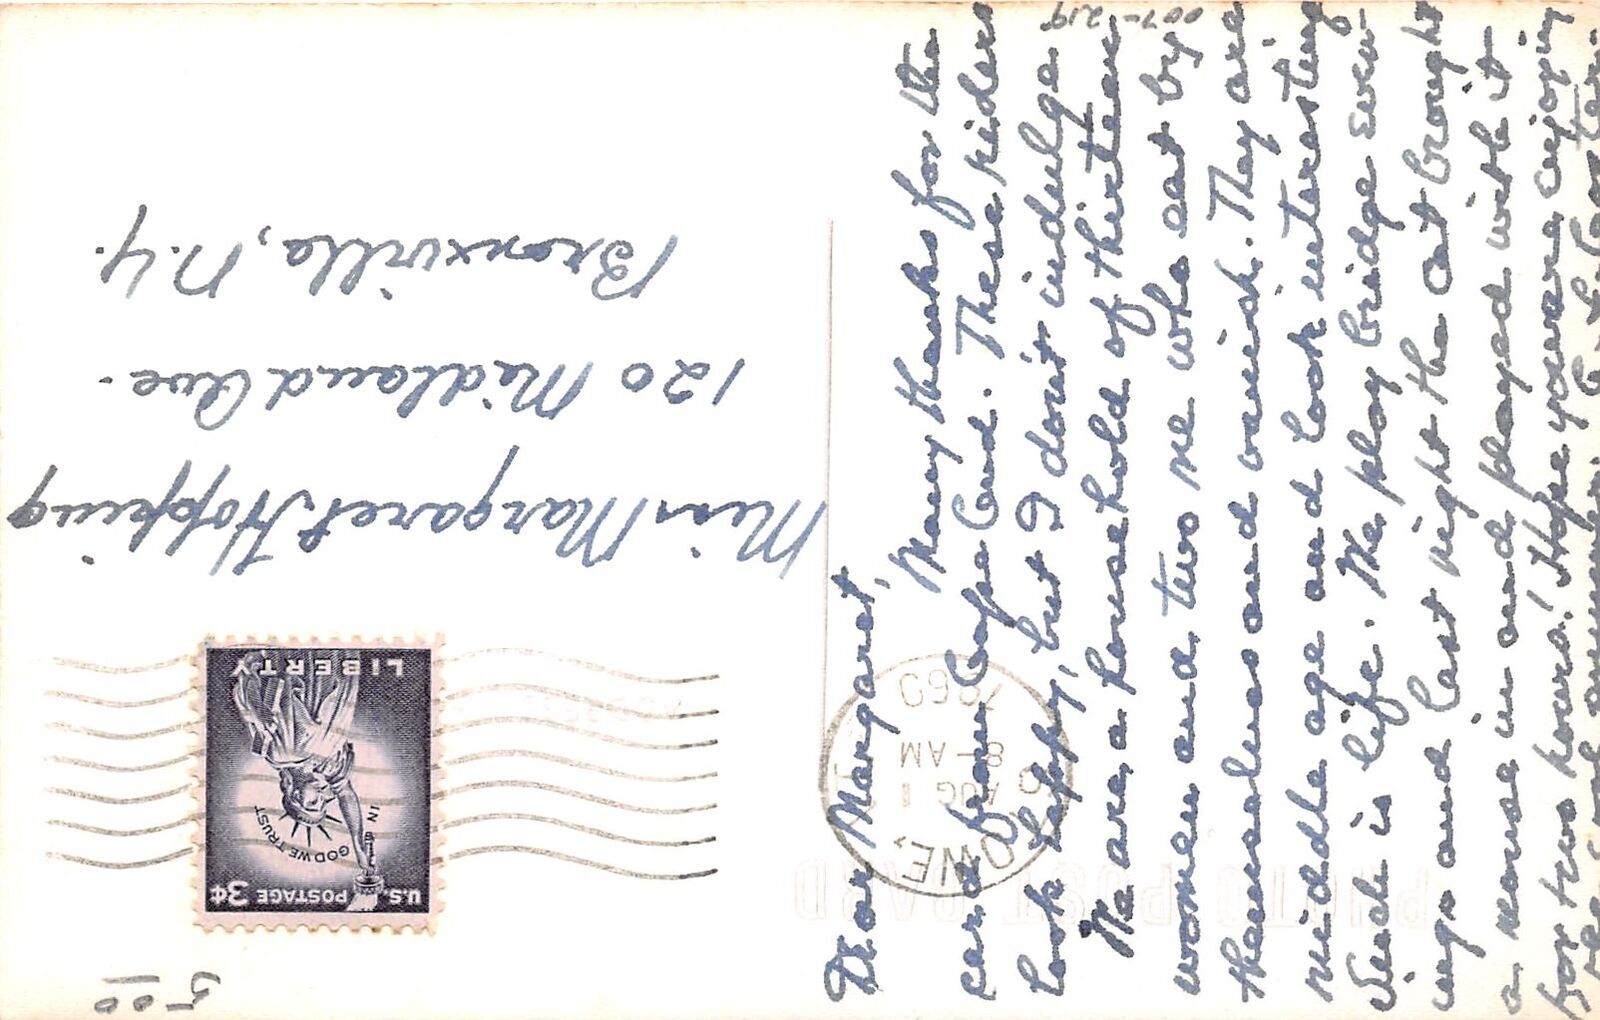 Dear Margaret,
Many thanks for the
card from Cape Cod. These riders
look happy, but I don't indulge
We are a household of thirteen
women and two me who eat by
themselves and vanish. They are
middle age and look interesting
Such is life. We play bridge eve-
ings and last night the cat brought
a mouse in and played with it
for two hours! Hope you are enjoying
Miss Margaret Hopping
120 Midland Ave.
Bronxville, N.Y.
U.S. POSTAGE 3¢
IN GOD WE TRUST
LIBERTY
AUG 1
8-AM
1960
PHOTO POST CARD
007-219
5.00